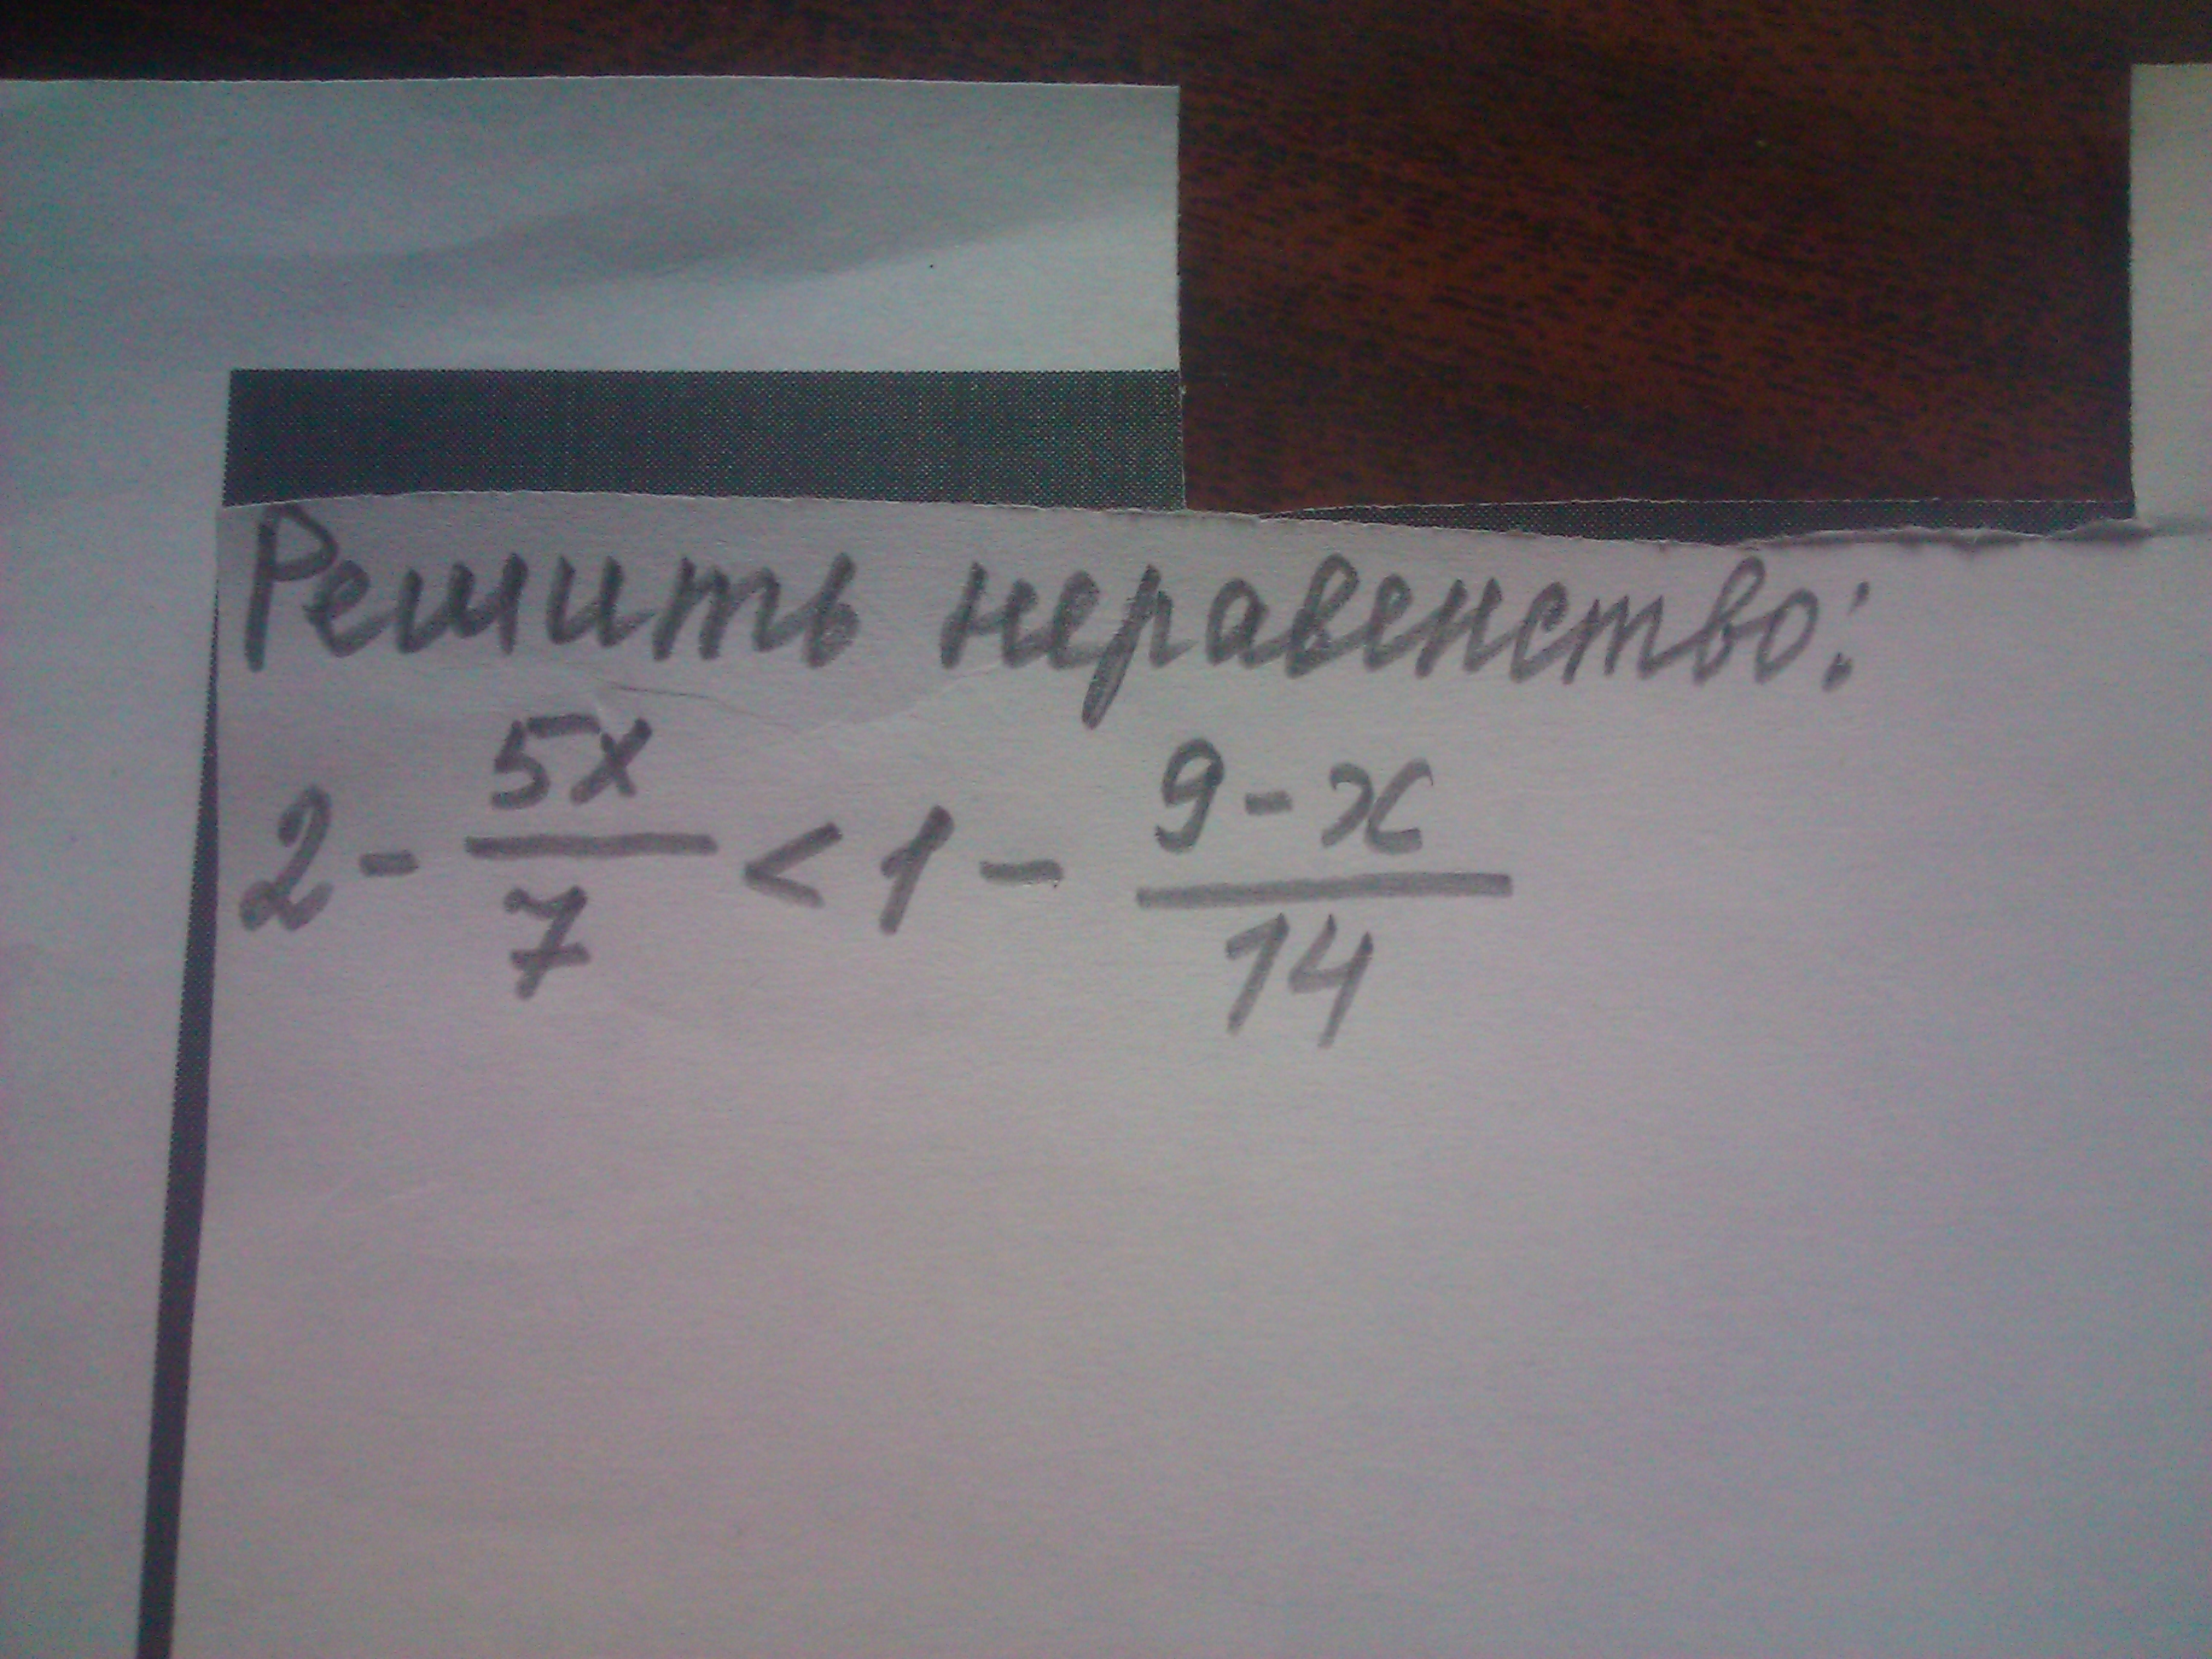 Решить неравенство:
2 - \frac{5x}{7} < 1 - \frac{9-x}{14}